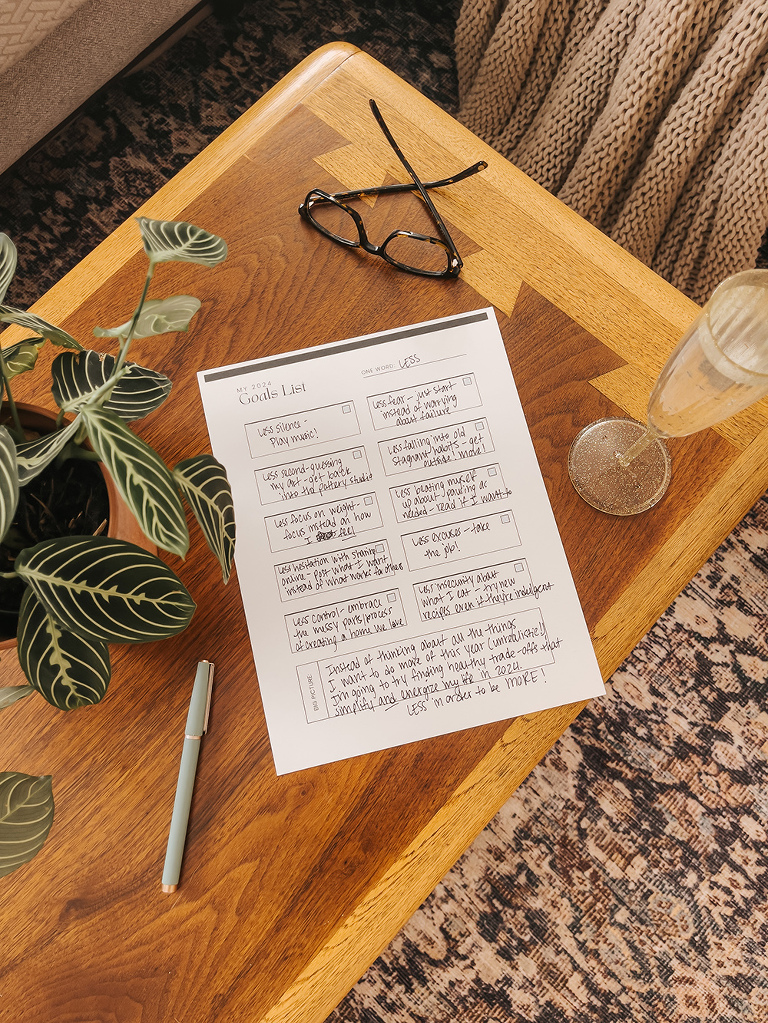 MY 2024
Goals List
ONE WORD: LESS
Less silence -
Play music!
Less second-guessing
my art - get back
into the pottery studio
Less focus on weight -
focus instead on how
I feel
Less hesitation with sharing
online - post what I want
instead of what works for others
Less control - embrace
the messy parts/process
of creating a home we love
Less fear - just start
instead of worrying
about failure
Less falling into old
stagnant habits - get
outside! move!
Less beating myself
up about pausing or
needed - read if I want to
Less excuses - take
the job!
Less insecurity about
what I eat - try new
recipes even if they're indulgent
BIG PICTURE
Instead of thinking about all the things
I want to do more of this year (unrealistic!)
I'm going to try finding healthy trade-offs that
simplify and energize my life in 2024.
"LESS" in order to be MORE!